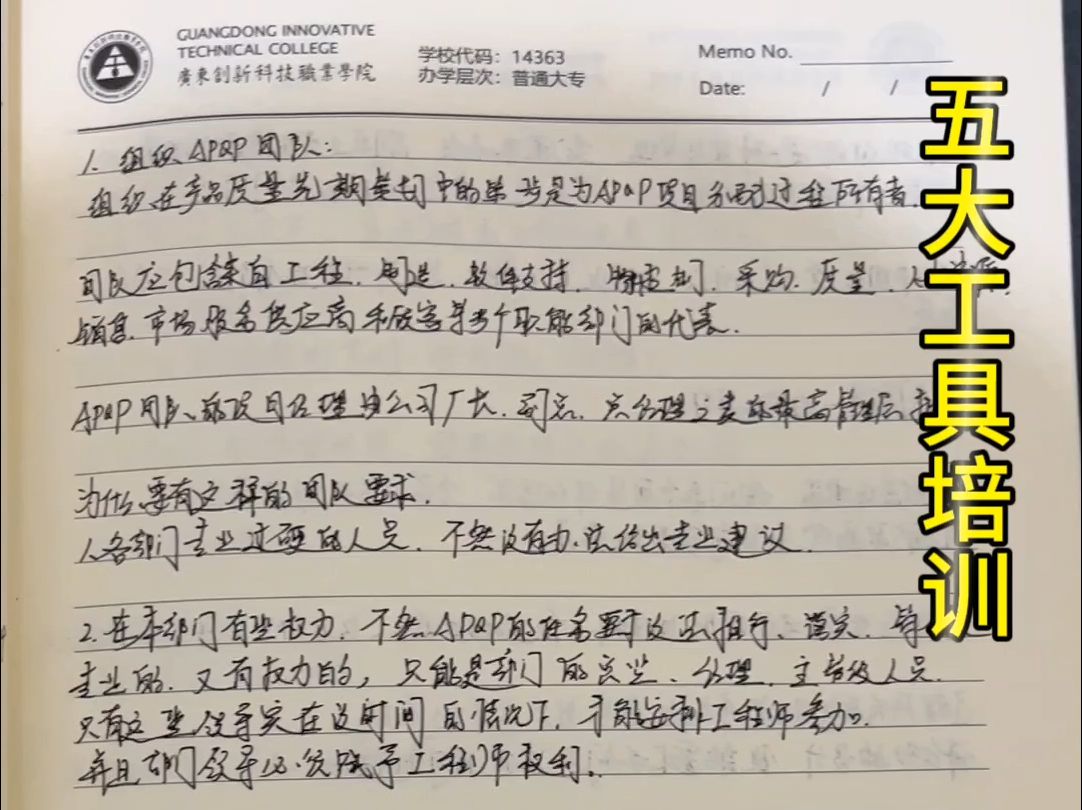 GUANGDONG INNOVATIVE
TECHNICAL COLLEGE
廣東創新科技職業學院
学校代码：14363
办学层次：普通大专
Memo No.
Date: / /
五大工具培训
1. 组织APQP团队：
组织在产品质量先期策划中的第一步是为APQP项目分配过程所有者.
团队应包含来自工程、制造、软件支持、物流、采购、质量、人
销售、市场服务供应商和顾客等多个职能部门的代表.
APQP团队的项目经理由公司厂长、副总、总经理之类的最高管理层
为什么要有这样的团队要求.
1、各部门专业过硬的人员、不然没有办法给出专业建议.
2.在本部门有些权力、不然APQP的任务要求没法推行、落实、
专业的、又有权力的，只能是部门的总监、经理、主管级人员.
只有这些领导实在没时间的情况下、才能安排工程师参加.
并且部门领导必须赋予工程师权利.